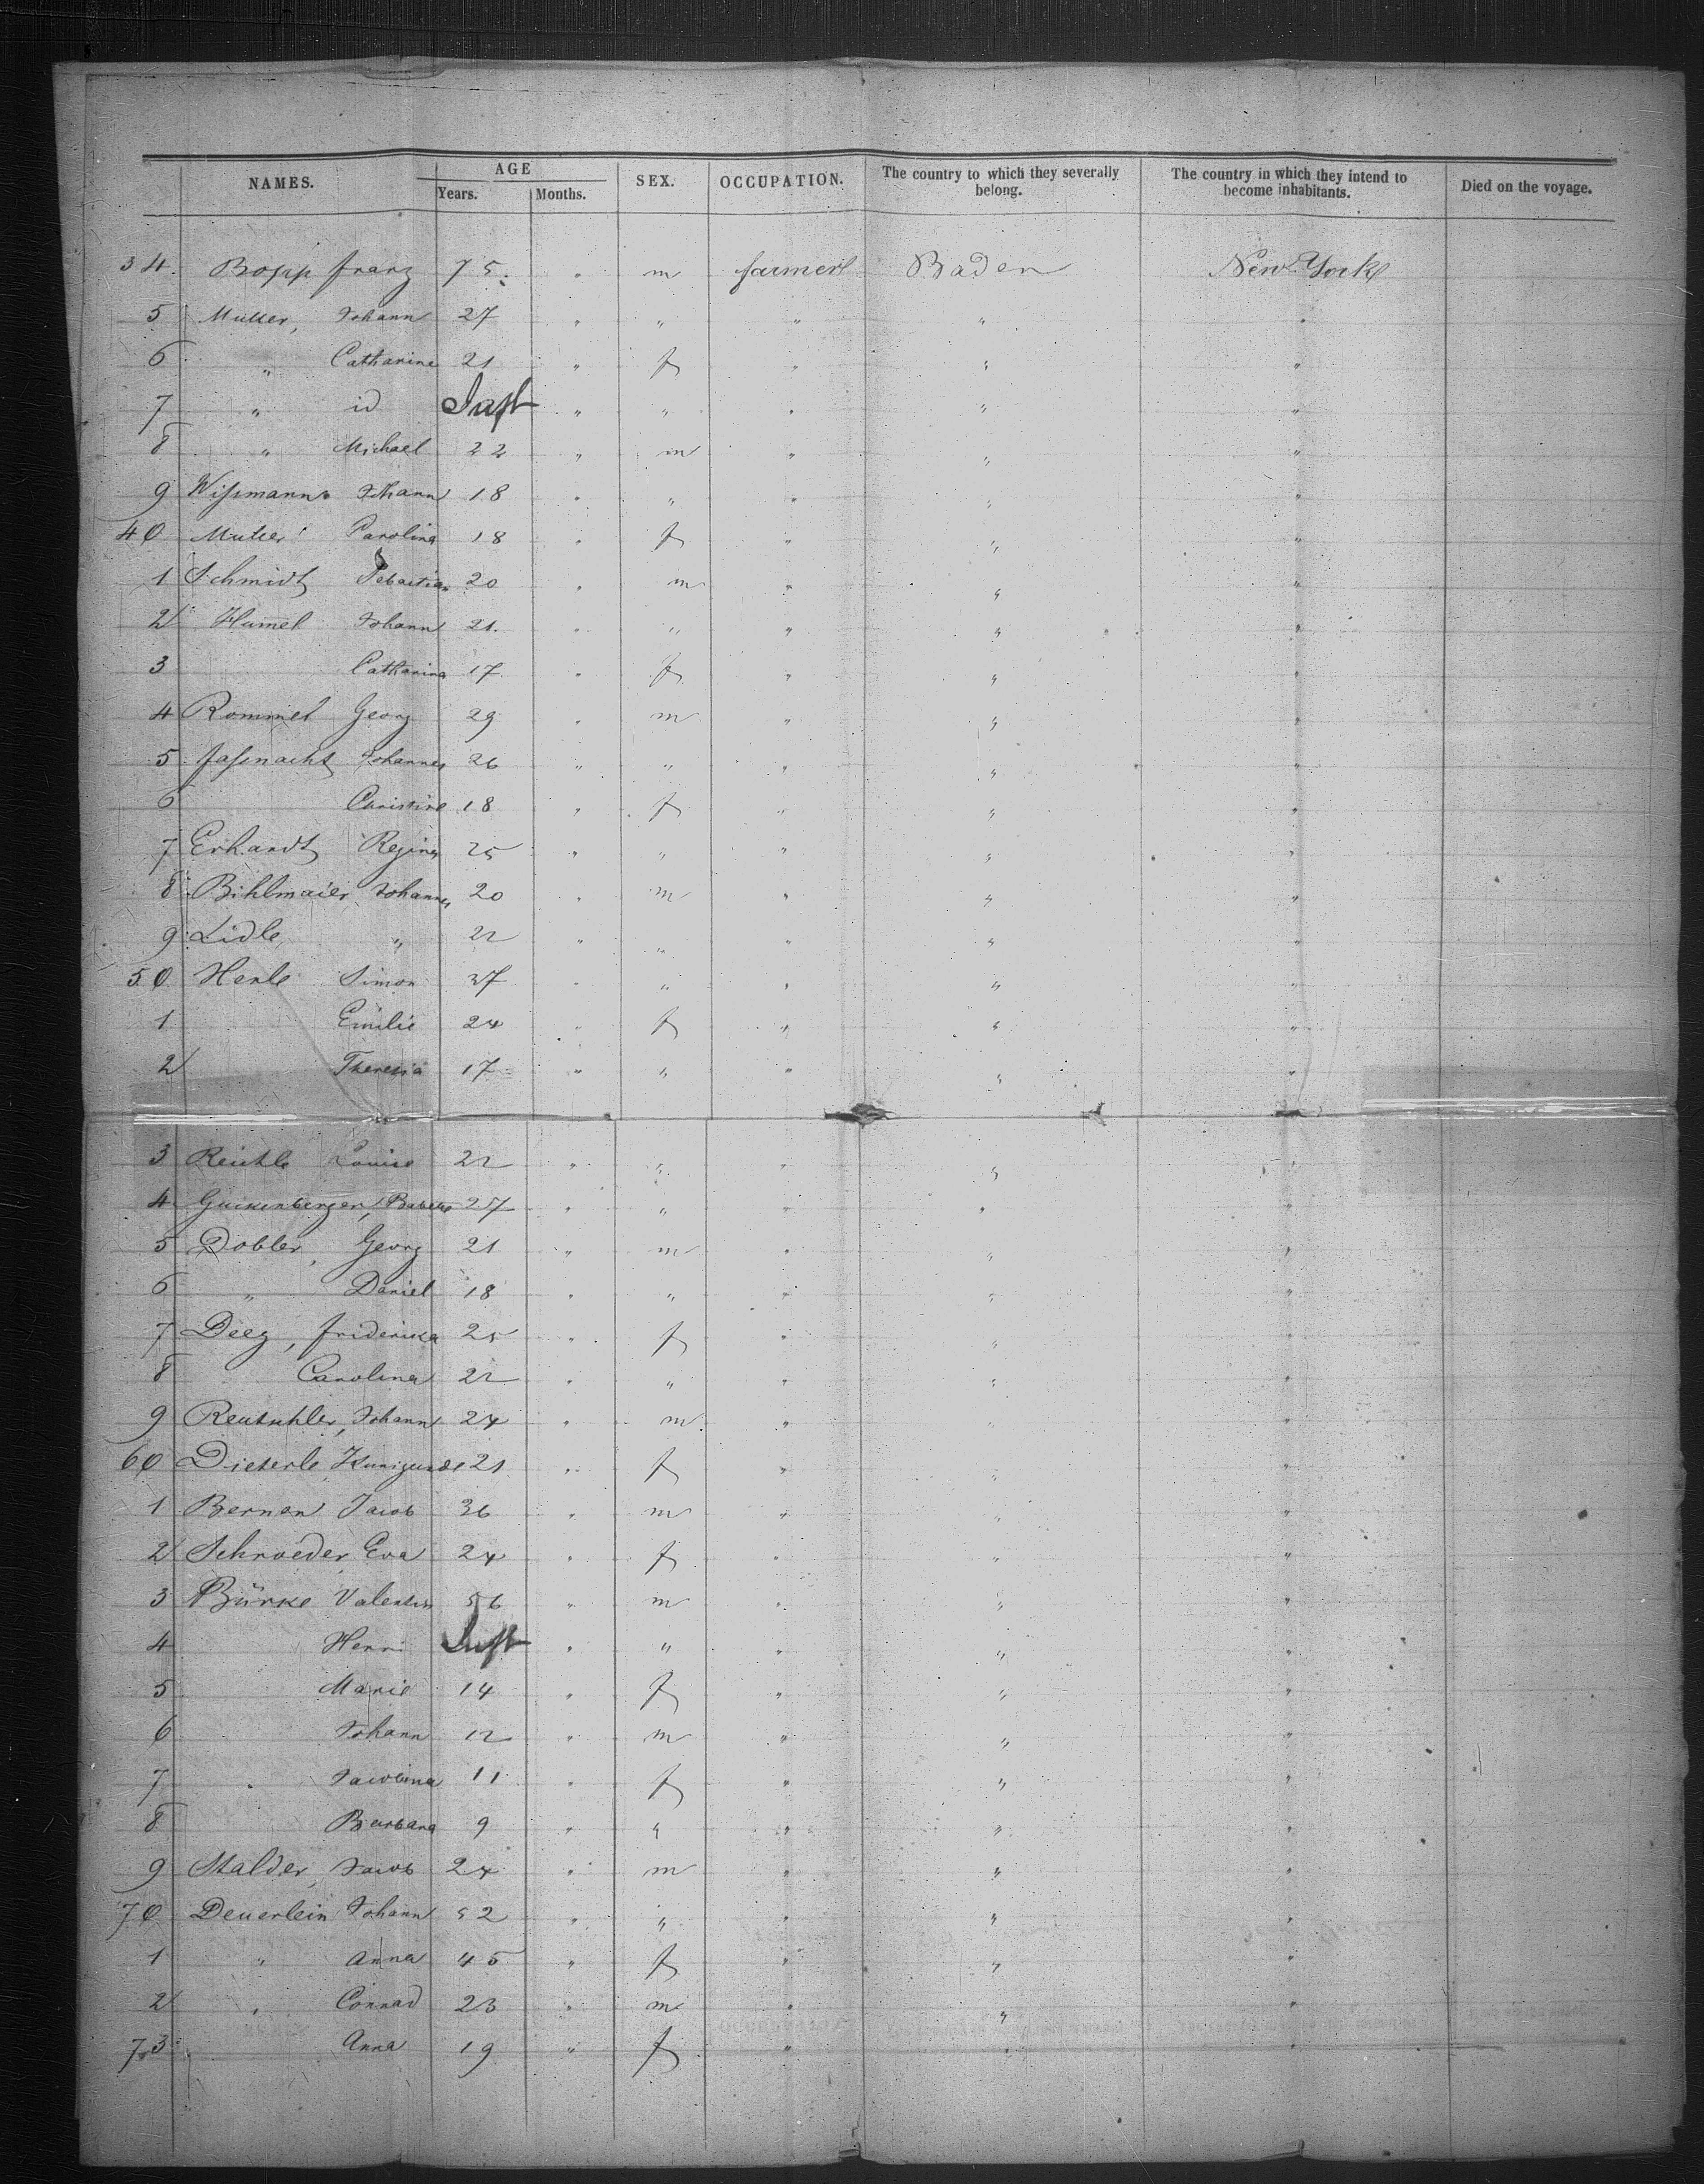 NAMES. AGE Years. Months. SEX. OCCUPATION. The country to which they severally belong. The country in which they intend to become inhabitants. Died on the voyage.
34. Bopp franz 75. " m farmers Baden New York
5 Muller, Johann 27 " " " " "
6 " Catharine 21 " f " " "
7 " id Inft " " " " "
8 " Michael 22 " m " " "
9 Wißmann Johann 18 " " " " "
40 Muller Carolina 18 " f " " "
1 Schmidt Sebastian 20 " m " " "
2 Humel Johann 21. " " " " "
3 Catharina 17 " f " " "
4 Rommel Georg 29 " m " " "
5 faßnacht Johannes 26 " " " " "
6 Christine 18 " f " " "
7 Erhardt Regina 25 " " " " "
8 Bihlmaier Johannes 20 " m " " "
9 Lidle " 22 " " " " "
50 Henle Simon 37 " " " " "
1 Emilie 24 " f " " "
2 Theresia 17 " " " " "
3 Louise 22 " " " " "
4 27 " " " " "
5 Dobler, Georg 21 " m " " "
6 " Daniel 18 " " " " "
7 Deeg, friderika 25 " f " " "
8 Carolina 22 " " " " "
9 Johann 24 " m " " "
60 Dieterle Kunigunde 21 " f " " "
1 Bernen Jacob 36 " m " " "
2 Schroeder Eva 24 " f " " "
3 Bürke Valentin 56 " m " " "
4 Henri Inft " " " " "
5 Marie 14 " f " " "
6 Johann 12 " m " " "
7 " Jacobina 11 " f " " "
8 Barbara 9 " " " " "
9 Malder, Jacob 24 " m " " "
70 Deuerlein Johann 52 " " " " "
1 " Anna 45 " f " " "
2 " Conrad 23 " m " " "
73 " Anna 19 " f " " "